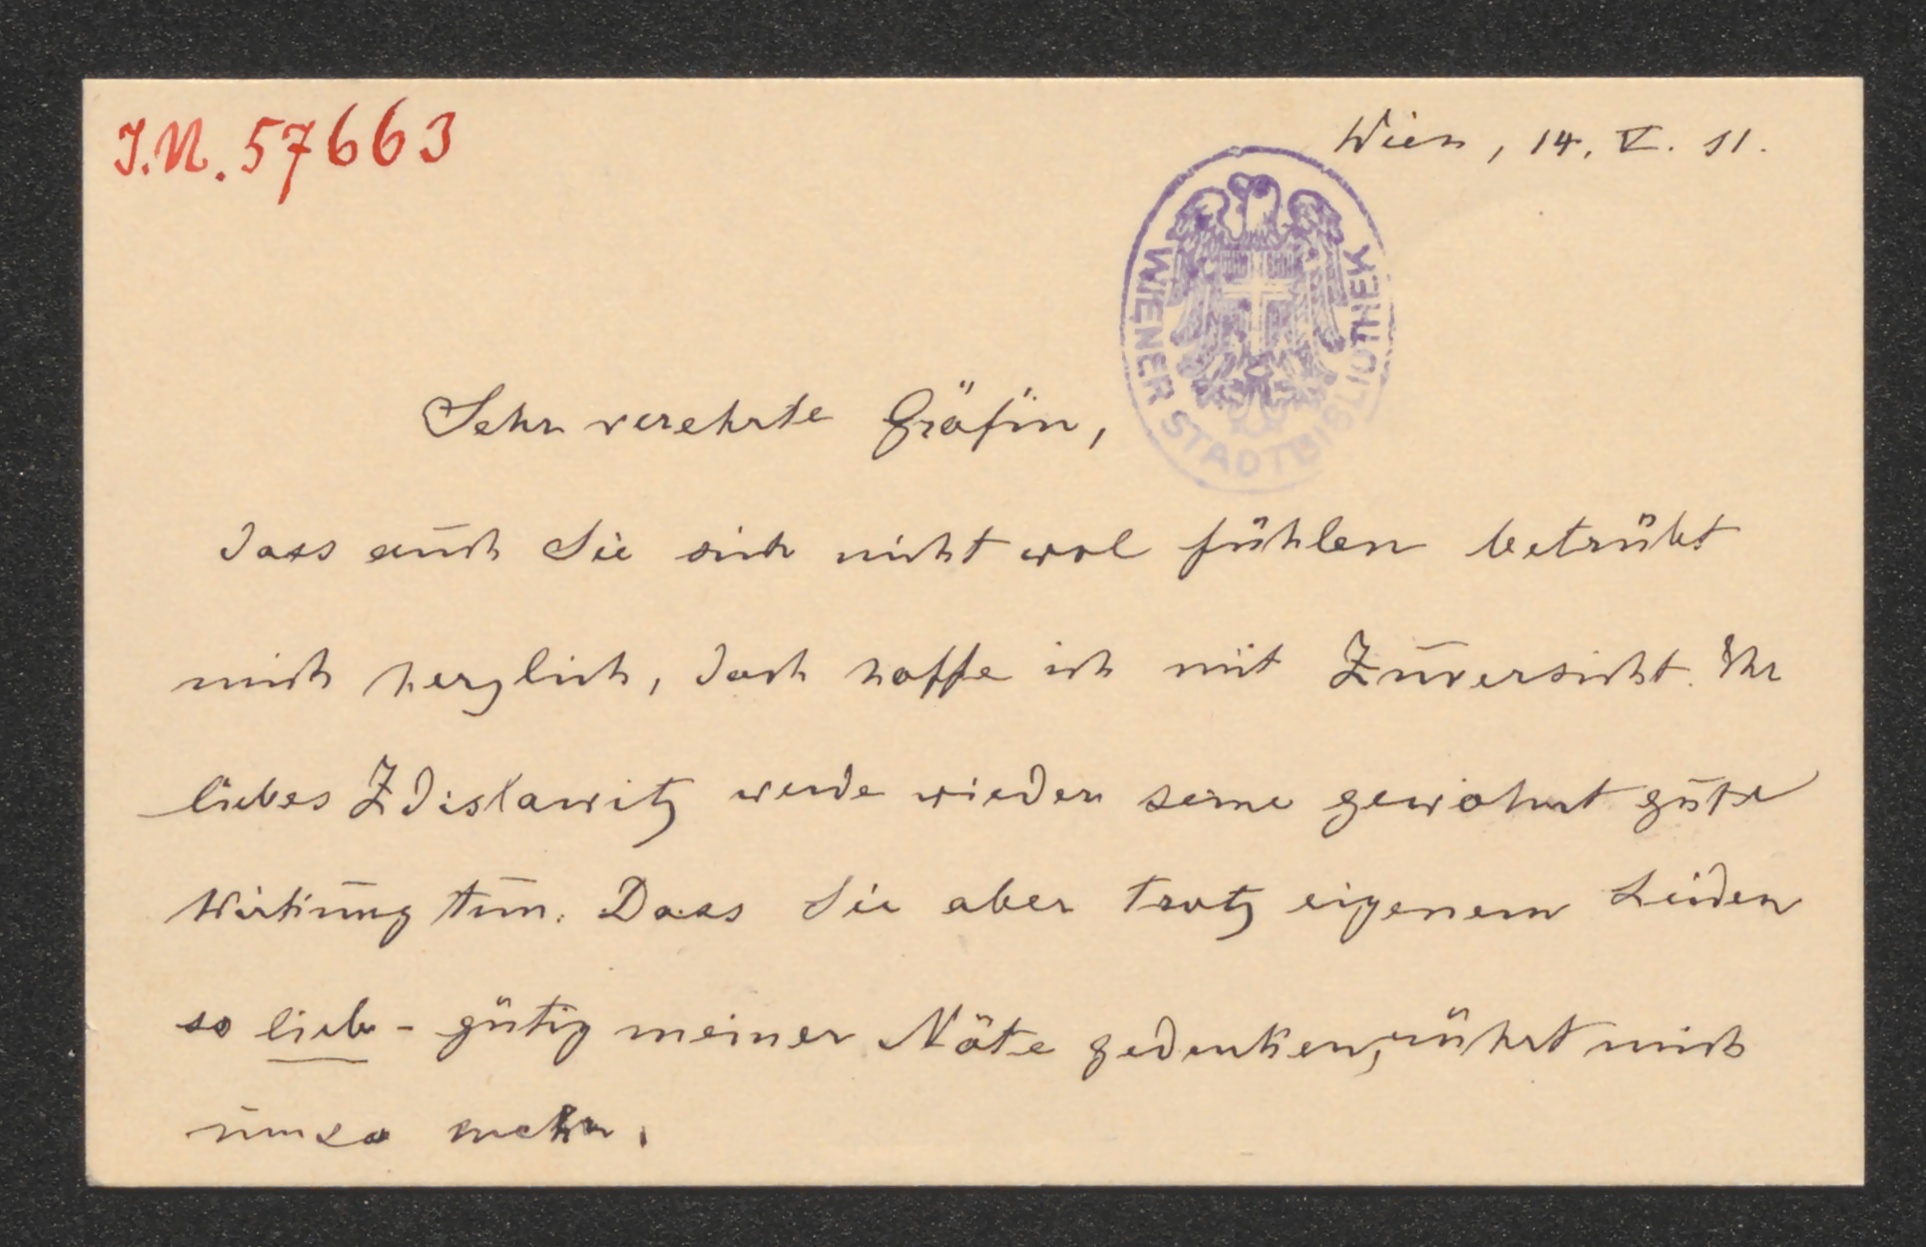 I.N. 57663
Wien, 14. V. 11.
WIENER STADTBIBLIOTHEK
Sehr verehrte Gräfin,
dass auch Sie sich nicht wol fühlen betrübt
mich herzlich, doch hoffe ich mit Zuversicht. Ihr
liebes Zdislawitz werde wieder seine gewohnt gute
Wirkung tun. Dass Sie aber trotz eigenem Leiden
so lieb-gütig meiner Nöte gedenken, rührt mich
umso mehr.